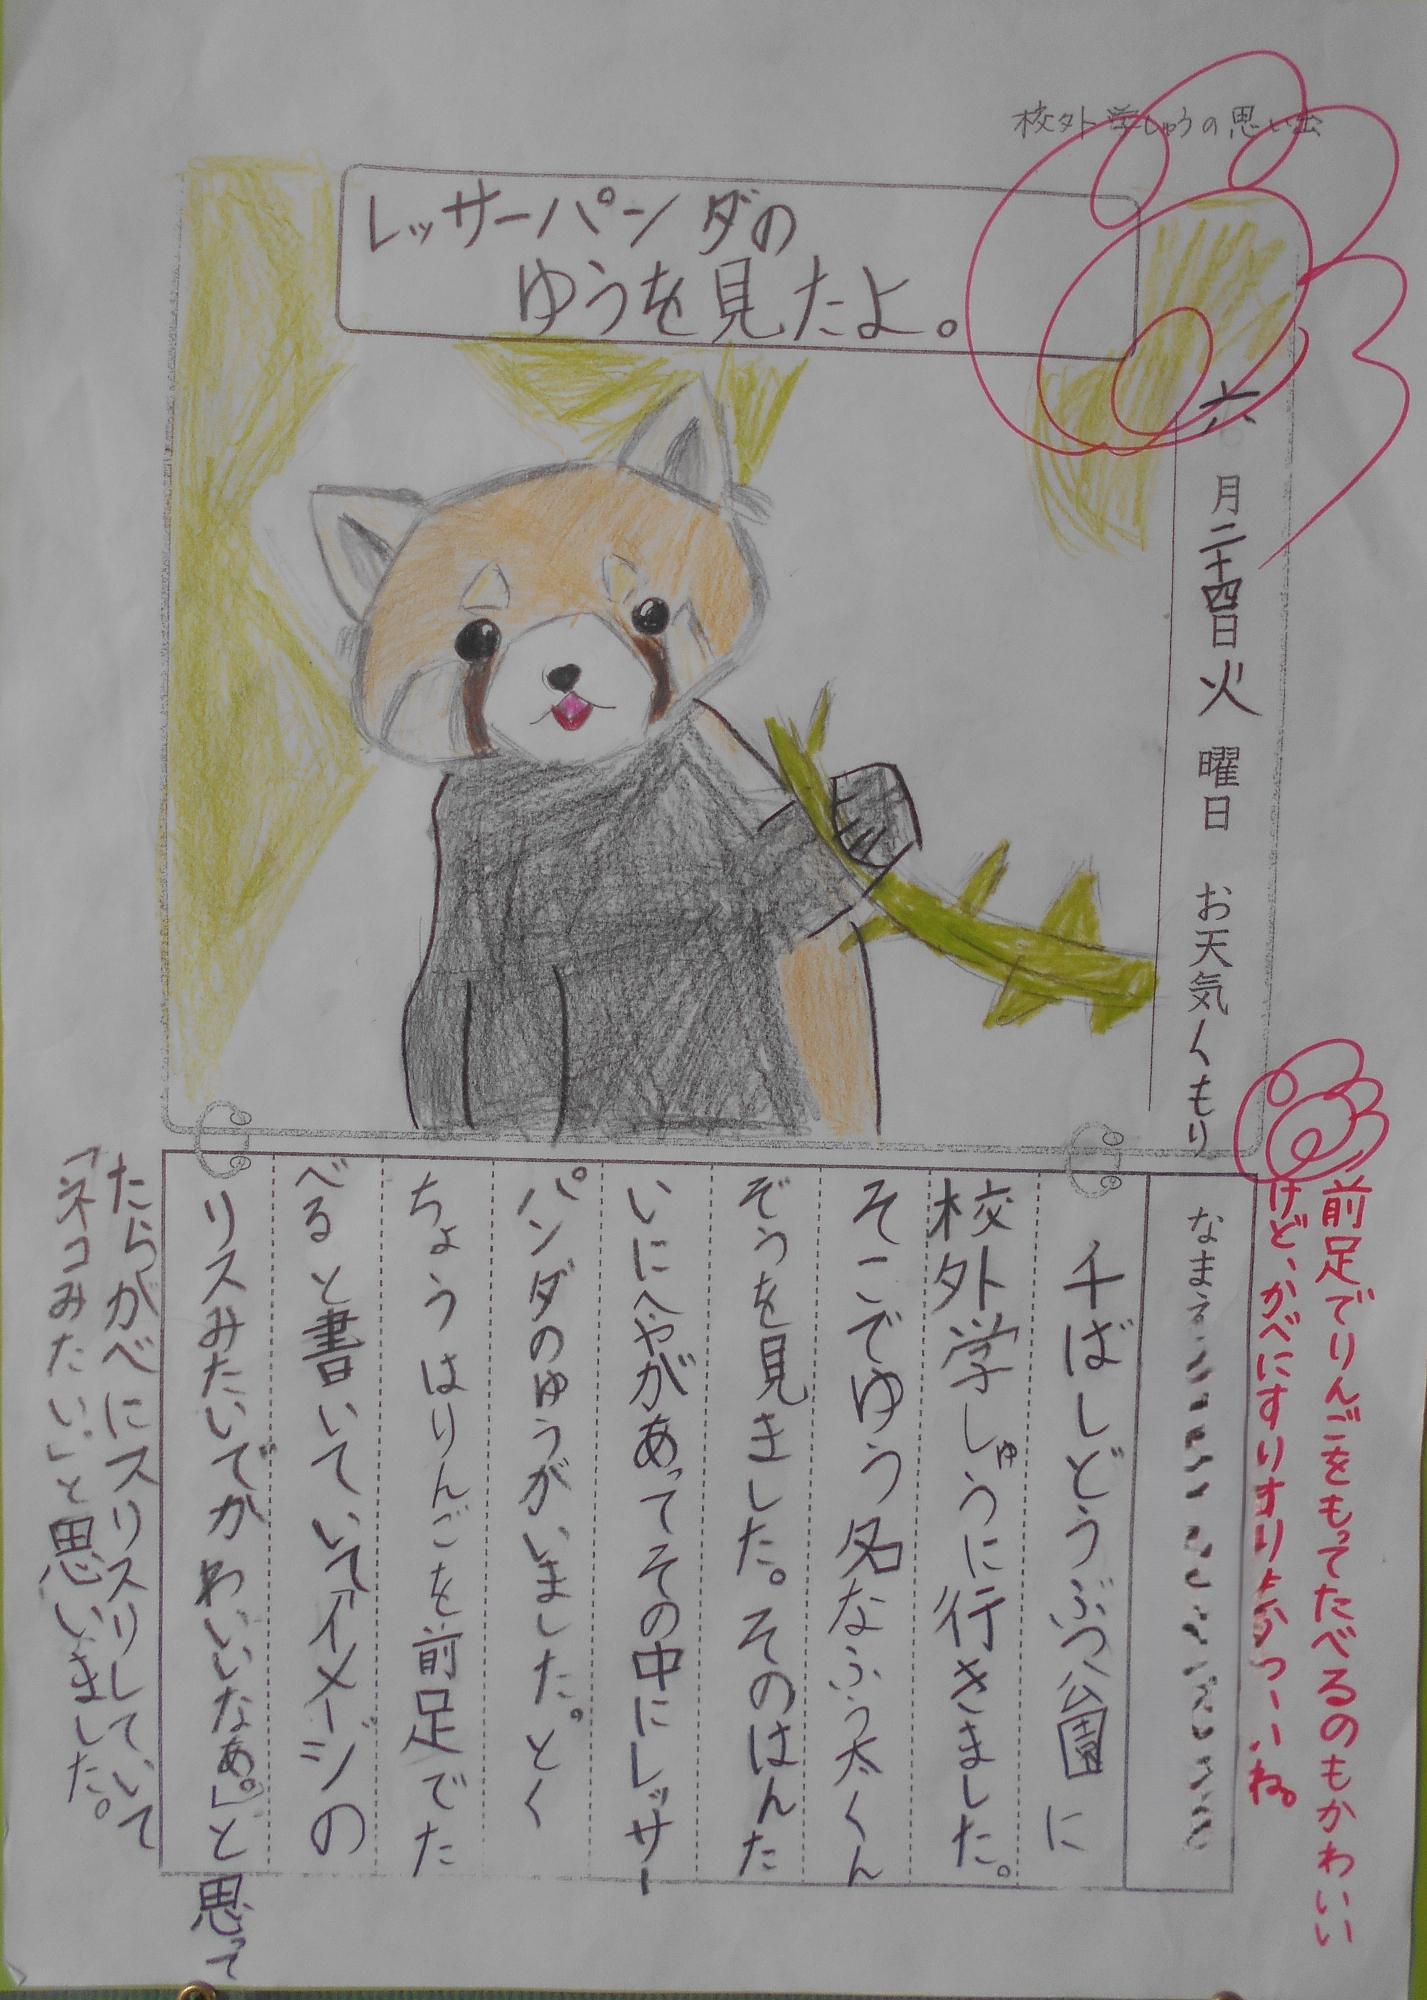 校外学しゅうの思い出
レッサーパンダの
ゆうを見たよ。
六月二十四日火曜日 お天気くもり
なまえ
千ばしどうぶつ公園に
校外学しゅうに行きました。
そこでゆう名なふう太くん
ぞうを見ました。そのはんた
いにへやがあってその中にレッサー
パンダのゆうがいました。とく
ちょうはりんごを前足でた
べると書いていて「イメージの
リスみたいでかわいいなぁ。」と思って
たらかべにスリスリしていて
「ネコみたい」と思いました。
前足でりんごをもってたべるのもかわいい
けど、かべにすりすり